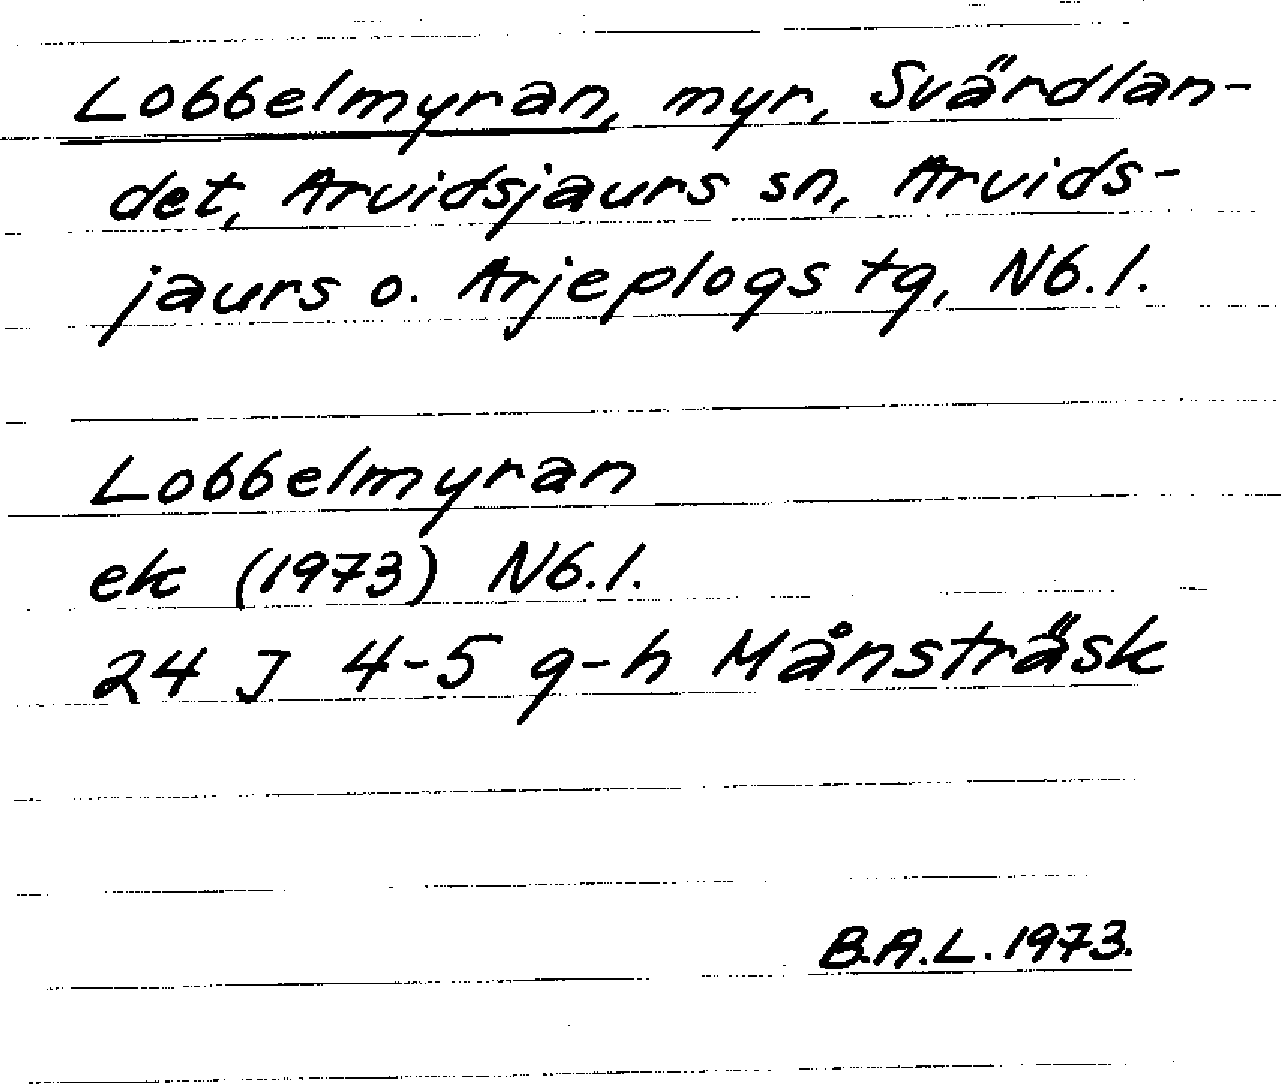 Lobbelmyran, myr, Svärdlan-
det, Arvidsjaurs sn, Arvids-
jaurs o. Arjeplogs tg, Nb.l.
Lobbelmyran
ek (1973) Nb.l.
24 J 4-5 g-h Månsträsk
B.A.L. 1973.